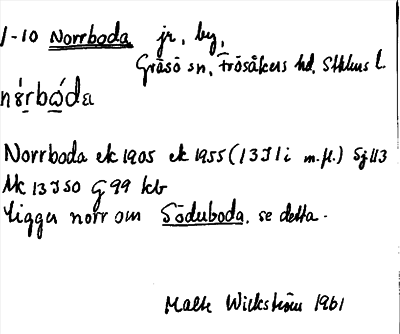 1-10 Norrboda jr, by,
Gräsö sn, Frösåkers hd, Sthlms l.
nórbòda
Norrboda ek 1905 ek 1955 (13J1i m.fl.) Sj 113
Mk 13J50 G99 kb
Ligger norr om Söderboda, se detta.
Malte Wickström 1961